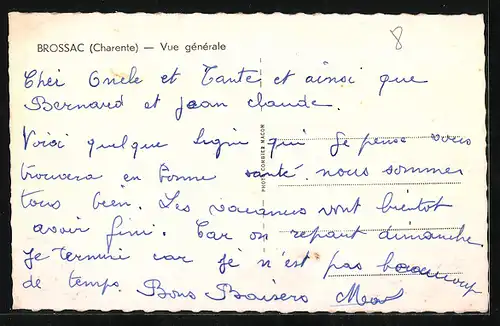 8
BROSSAC (Charente) — Vue générale
Cher Oncle et Tante et ainsi que
Bernard et Jean claude.
Voici quelque lign qui je pense vous
trouvera en bonne santé. nous sommes
tous bien. Les vacances vont bientot
avoir fini. Car on repart dimanche
Je termine car je n'est pas beaucoup
de temps. Bons Baisers
PHOTO COMBIER MACON